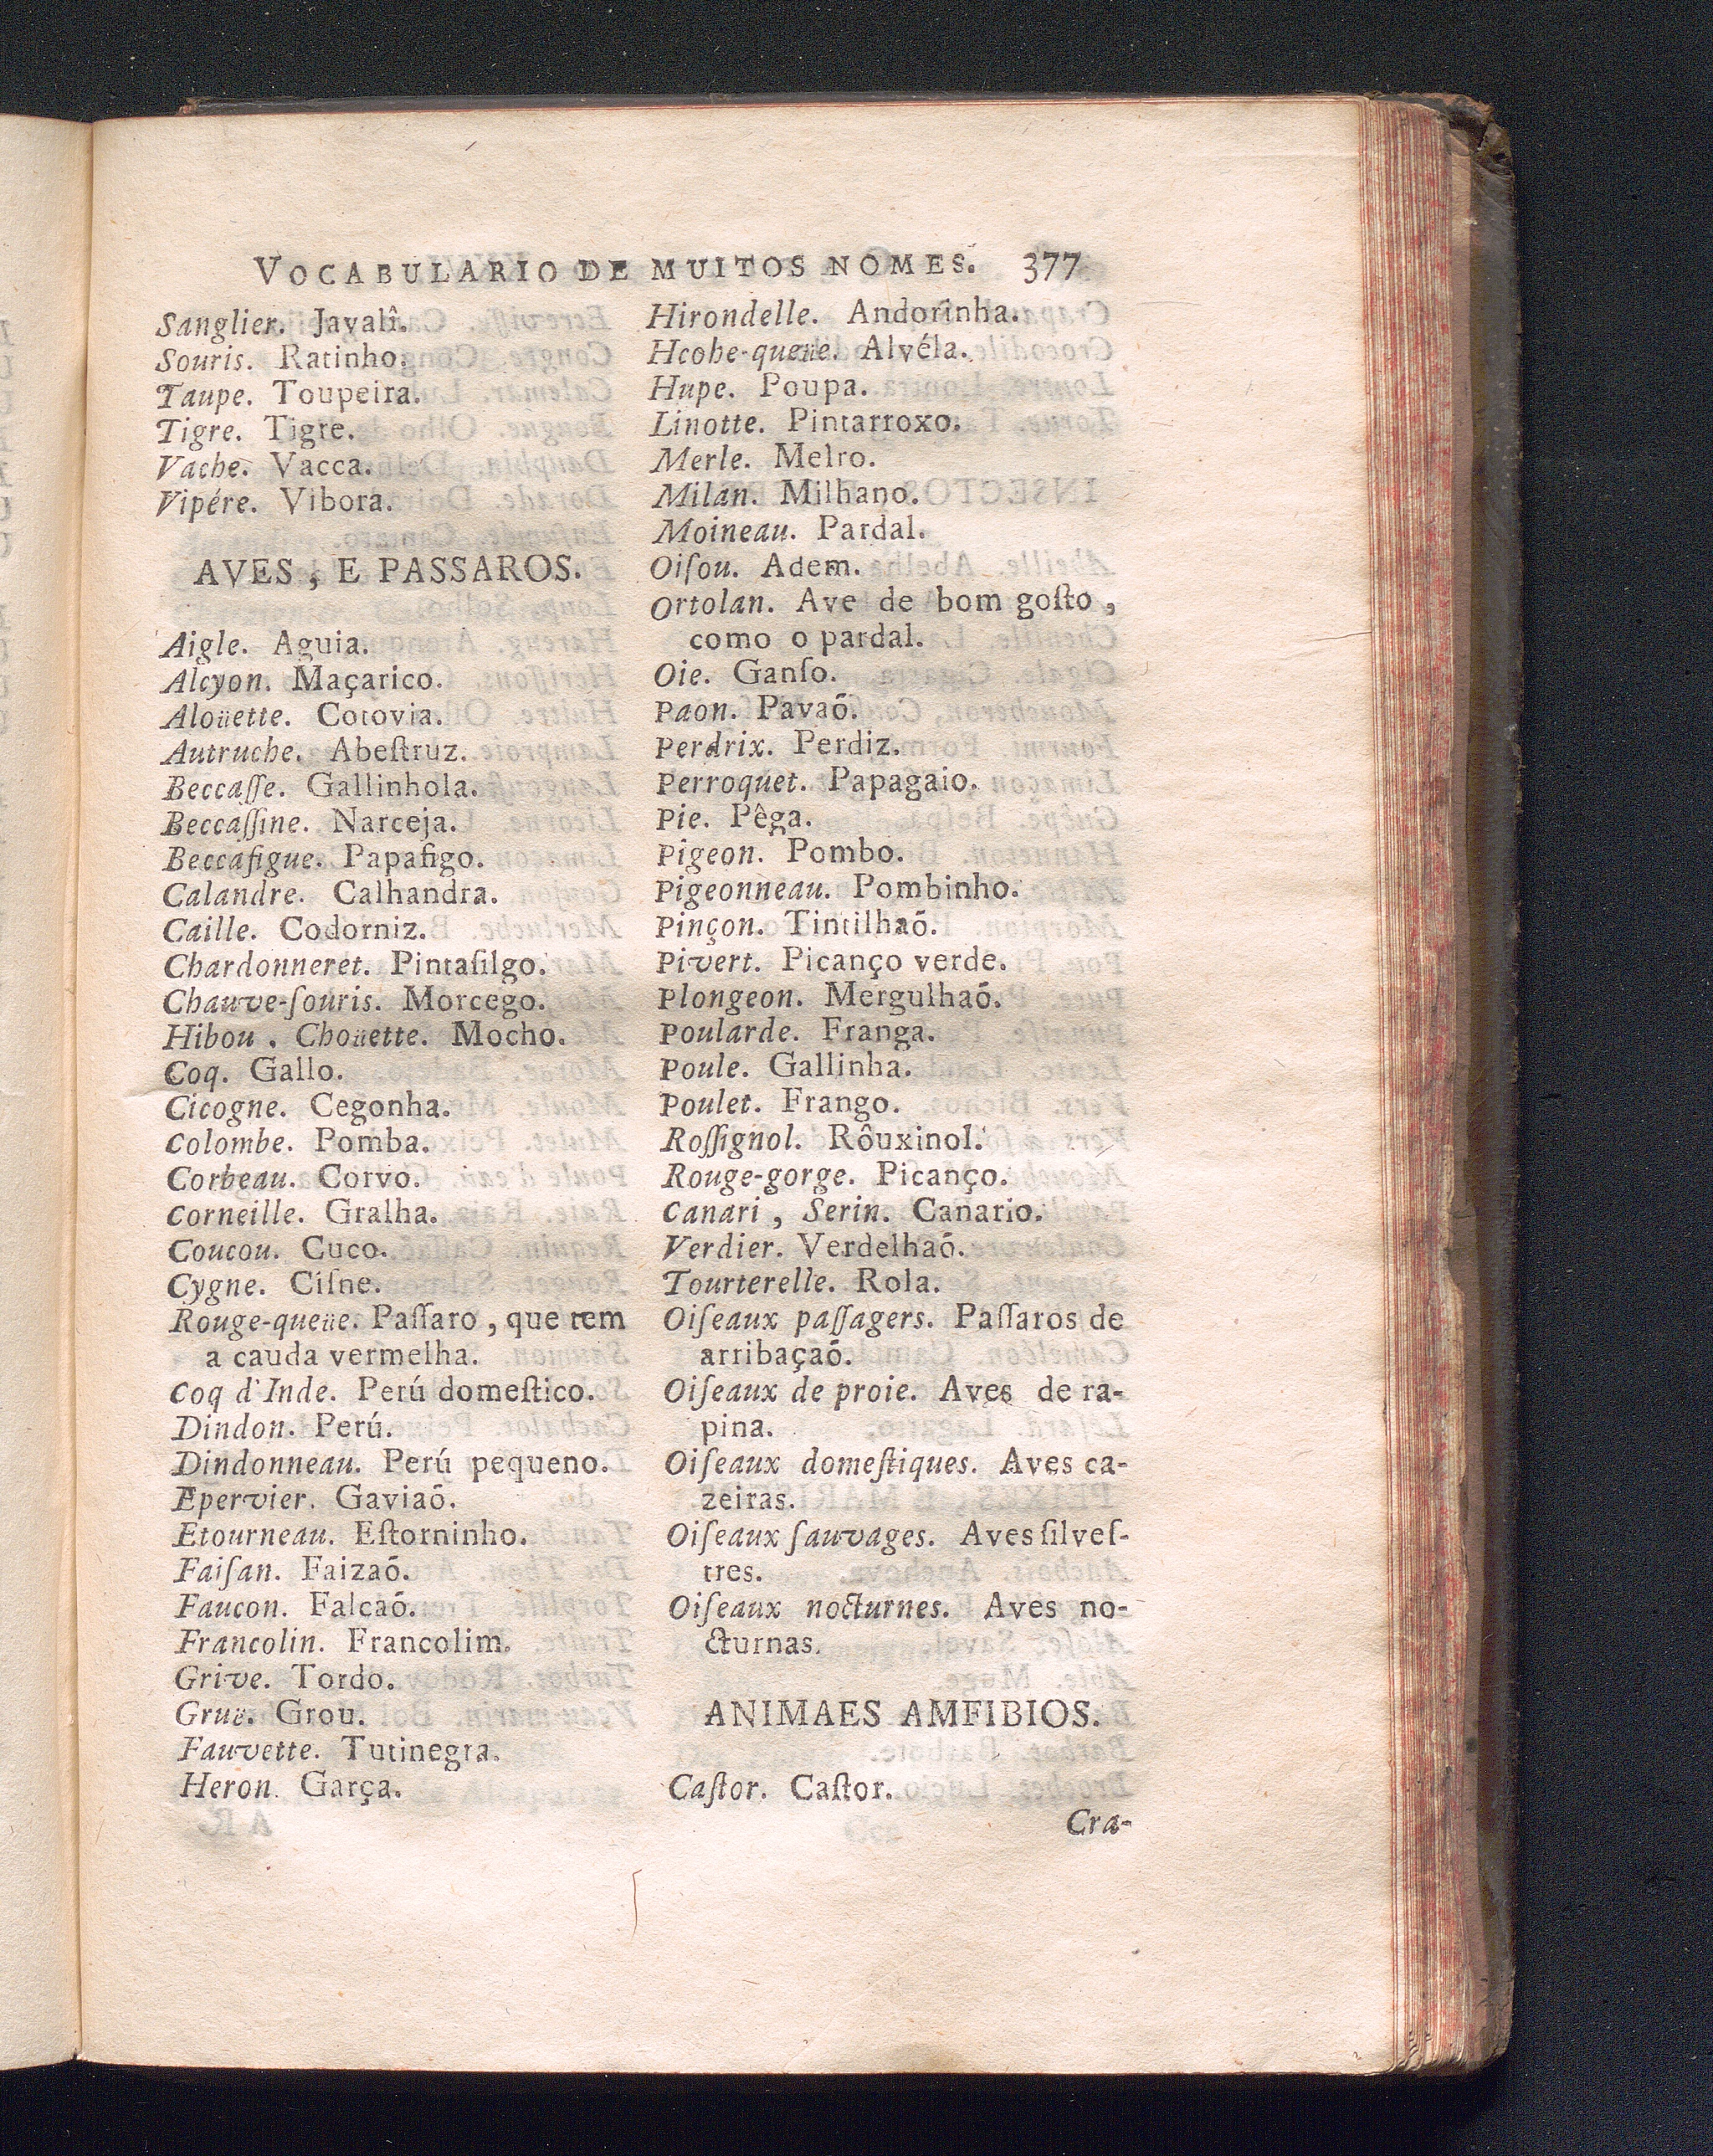 VOCABULARIO DE MUITOS NOMES. 377
Sanglier. Javalî.
Souris. Ratinho.
Taupe. Toupeira.
Tigre. Tigre.
Vache. Vacca.
Vipére. Vibora.
AVES, E PASSAROS.
Aigle. Aguia.
Alcyon. Maçarico.
Aloüette. Cotovia.
Autruche. Abeſtruz.
Beccaſſe. Gallinhola.
Beccaſſine. Narceja.
Beccafigue. Papafigo.
Calandre. Calhandra.
Caille. Codorniz.
Chardonneret. Pintaſilgo.
Chauve-ſouris. Morcego.
Hibou. Choüette. Mocho.
Coq. Gallo.
Cicogne. Cegonha.
Colombe. Pomba.
Corbeau. Corvo.
Corneille. Gralha.
Coucou. Cuco.
Cygne. Ciſne.
Rouge-queüe. Paſſaro, que tem
a cauda vermelha.
Coq d'Inde. Perú domeſtico.
Dindon. Perú.
Dindonneau. Perú pequeno.
Epervier. Gaviaõ.
Etourneau. Eſtorninho.
Faiſan. Faizaõ.
Faucon. Falcaõ.
Francolin. Francolim.
Grive. Tordo.
Gruë. Grou.
Fauvette. Tutinegra.
Heron. Garça.
Hirondelle. Andorinha.
Hcohe-queüe. Alvéla.
Hupe. Poupa.
Linotte. Pintarroxo.
Merle. Melro.
Milan. Milhano.
Moineau. Pardal.
Oiſou. Adem.
Ortolan. Ave de bom goſto,
como o pardal.
Oie. Ganſo.
Paon. Pavaõ.
Perdrix. Perdiz.
Perroquet. Papagaio.
Pie. Pêga.
Pigeon. Pombo.
Pigeonneau. Pombinho.
Pinçon. Tintilhaõ.
Pivert. Picanço verde.
Plongeon. Mergulhaõ.
Poularde. Franga.
Poule. Gallinha.
Poulet. Frango.
Roſſignol. Rôuxinol.
Rouge-gorge. Picanço.
Canari, Serin. Canario.
Verdier. Verdelhaõ.
Tourterelle. Rola.
Oiſeaux paſſagers. Paſſaros de
arribaçaõ.
Oiſeaux de proie. Aves de ra-
pina.
Oiſeaux domeſtiques. Aves ca-
zeiras.
Oiſeaux ſauvages. Aves ſilveſ-
tres.
Oiſeaux nocturnes. Aves no-
cturnas.
ANIMAES AMFIBIOS.
Caſtor. Caſtor.
Cra-